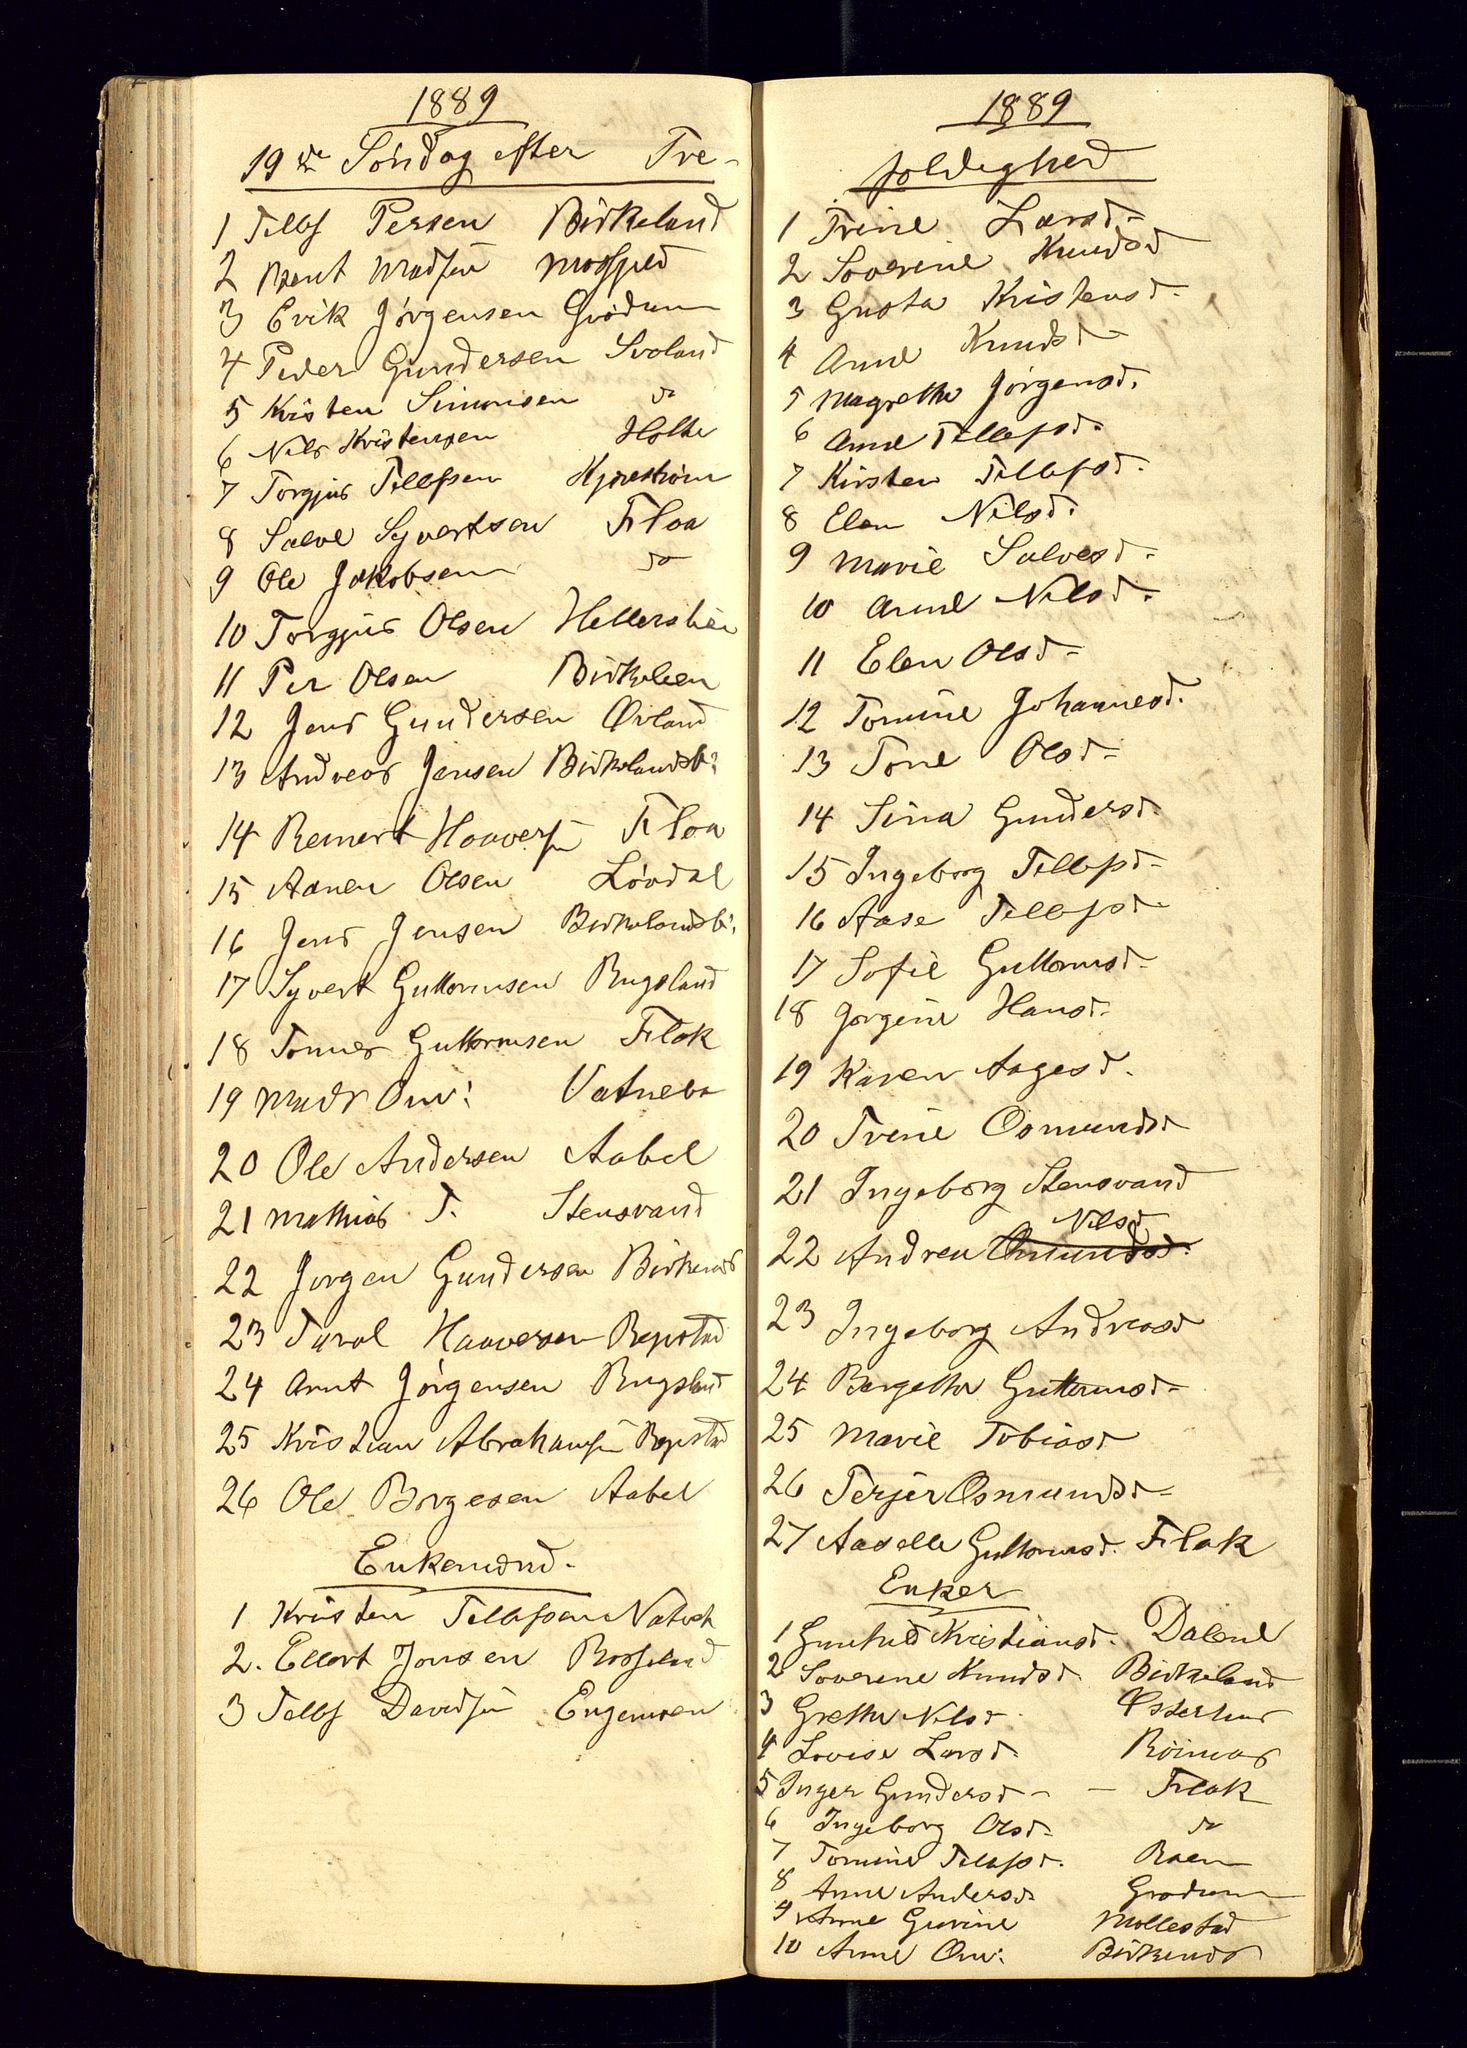 1889
19de Søndag efter Tre-
1 Tellf Persen Birkeland
2 Bent Madsen Mosfjed
3 Erik Jørgensen Grødum
4 Peder Gundersen Svoland
5 Kristen Simonsen do
6 Nils Kristensen Holte
7 Torgjus Tellefsen Kjærestrøm
8 Salve Syvertsen Floa
9 Ole Jakobsen do
10 Torgjus Olsen Hellershei
11 Per Olsen Birkeleen
12 Jens Gundersen Øvland
13 Andreas Jensen Birkelandsb:
14 Reinert Haaversen Floa
15 Adnen Olsen Løvdal
16 Jens Jensen Birkelandsb:
17 Syvert Guttormsen Rugsland
18 Tomes Guttormsen Flak
19 Mads Om: Vatnebo
20 Ole Andersen Aabel
21 Mathias T. Stensvand
22 Jørgen Gundersen Birkenes
23 Tarol Haaversen Repstad
24 Arnt Jørgensen Rugsland
25 Kristian Abrahamsen Repstad
26 Ole Børgesen Aabel
Enkemænd.
1 Kristen Tellefsen Natvet
2. Ellert Jonsen Bosseland
3 Tellf Davidsen Engemoen
1889
foldighed
1 Trine Larsd-
2 Soverine Knudsd
3 Gusta Kristensd-
4 Anne Knudsd-
5 Magrethe Jørgensd.
6 Anne Tellefsd.
7 Kirsten Tellefsd.
8 Elen Nilsd.
9 Marie Salvesd-
10 Anne Nilsd.
11 Elen Olsd-
12 Tomine Johannesd.
13 Tone Olsd-
14 Sina Gundersd-
15 Ingeborg Tellefsd-
16 Aase Tellefsd-
17 Sofie Guttormsd-
18 Jørgine Hansd-
19 Karen Aagesd.
20 Trine Osmundsd
21 Ingeborg Stensvand
Nilsd
22 Andrea Omundsd.
23 Ingeborg Andreasd
24 Bergethe Guttormsd-
25 Marie Tobiasd
26 Terjer Osmundsd-
27 Aaselle Guttormsd. Flak
Enker
1 Gunhild Kristiansd. Dalene
2 Soverine Knudsd. Birkeland
3 Grethe Nilsd. Østerhus
4 Lovise Larsd- Røinaas
5 Inger Gundersd - - Flak
6 Ingeborg Olsd- do
7 Tomine Tellefsd. Raen
8 Anne Andersd- Grødum
9 Anne Gurine Mollestad
10 Anne Om: Birkenes